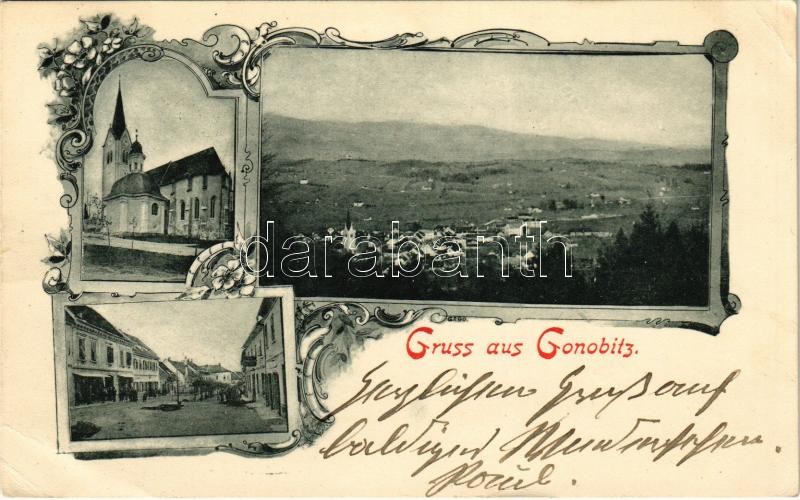 darabanth
Gruss aus Gonobitz.
Herzlichen Gruß auf
baldiges Wiedersehen.
Paul.